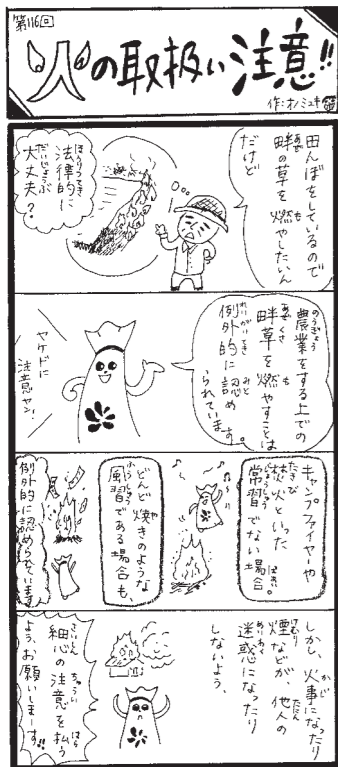 第116回
火の取扱い注意!!
作:オノミユキ
田んぼをしているので
畔の草を燃やしたいん
だけど
法律的に
大丈夫?
農業をする上での
畔草を燃やすことは
例外的に認め
られています。
ヤケドに
注意ヤン!
キャンプファイヤーや
焚火といった
常習でない場合。
どんど焼きのような
風習である場合も、
例外的に認められています
しかし、火事になったり
煙などが、他人の
迷惑になったり
しないよう、
細心の注意を払う
よう、お願いしまーす!!